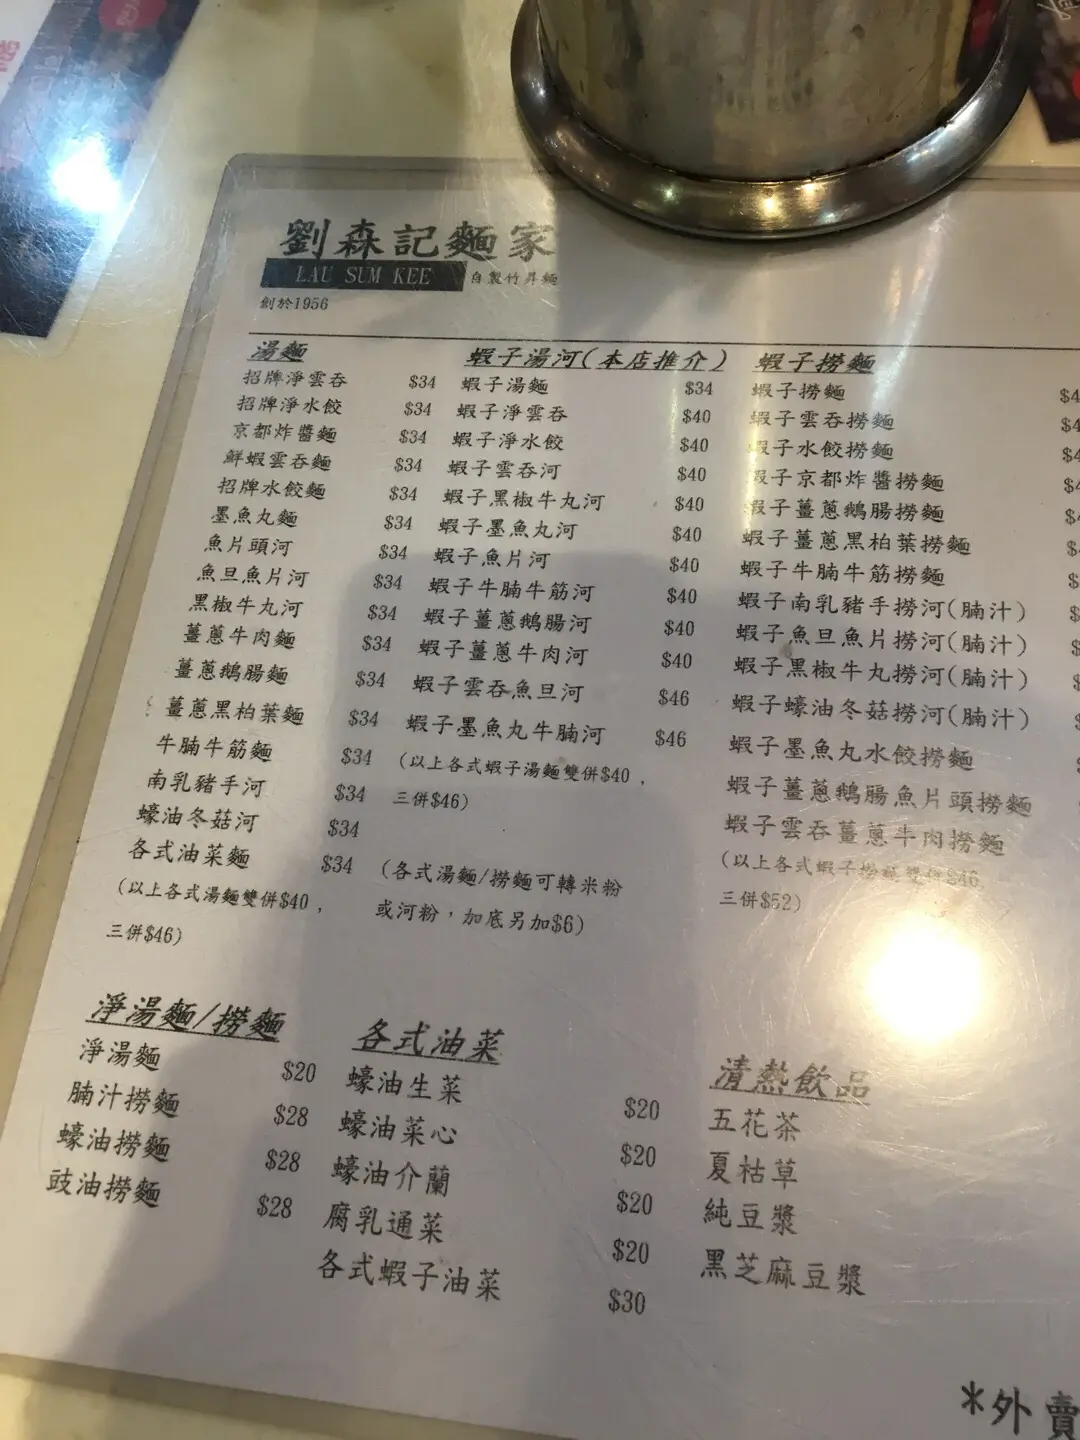 劉森記麵家
LAU SUM KEE 自製竹昇麵
創於1956
湯麵
招牌淨雲吞 $34
招牌淨水餃 $34
京都炸醬麵 $34
鮮蝦雲吞麵 $34
招牌水餃麵 $34
墨魚丸麵 $34
魚片頭河 $34
魚旦魚片河 $34
黑椒牛丸河 $34
薑蔥牛肉麵 $34
薑蔥鵝腸麵 $34
薑蔥黑柏葉麵 $34
牛腩牛筋麵 $34
南乳豬手河 $34
蠔油冬菇河 $34
各式油菜麵 $34
(以上各式湯麵雙併$40，
三併$46)
蝦子湯河(本店推介)
蝦子湯麵 $34
蝦子淨雲吞 $40
蝦子淨水餃 $40
蝦子雲吞河 $40
蝦子黑椒牛丸河 $40
蝦子墨魚丸河 $40
蝦子魚片河 $40
蝦子牛腩牛筋河 $40
蝦子薑蔥鵝腸河 $40
蝦子薑蔥牛肉河 $40
蝦子雲吞魚旦河 $46
蝦子墨魚丸牛腩河 $46
(以上各式蝦子湯麵雙併$40，
三併$46)
(各式湯麵/撈麵可轉米粉
或河粉，加底另加$6)
蝦子撈麵
蝦子撈麵
蝦子雲吞撈麵
蝦子水餃撈麵
蝦子京都炸醬撈麵
蝦子薑蔥鵝腸撈麵
蝦子薑蔥黑柏葉撈麵
蝦子牛腩牛筋撈麵
蝦子南乳豬手撈河(腩汁)
蝦子魚旦魚片撈河(腩汁)
蝦子黑椒牛丸撈河(腩汁)
蝦子蠔油冬菇撈河(腩汁)
蝦子墨魚丸水餃撈麵
蝦子薑蔥鵝腸魚片頭撈麵
蝦子雲吞薑蔥牛肉撈麵
(以上各式蝦子撈麵雙併$46，
三併$52)
淨湯麵/撈麵
淨湯麵 $20
腩汁撈麵 $28
蠔油撈麵 $28
豉油撈麵 $28
各式油菜
蠔油生菜 $20
蠔油菜心 $20
蠔油介蘭 $20
腐乳通菜 $20
各式蝦子油菜 $30
清熱飲品
五花茶
夏枯草
純豆漿
黑芝麻豆漿
*外賣